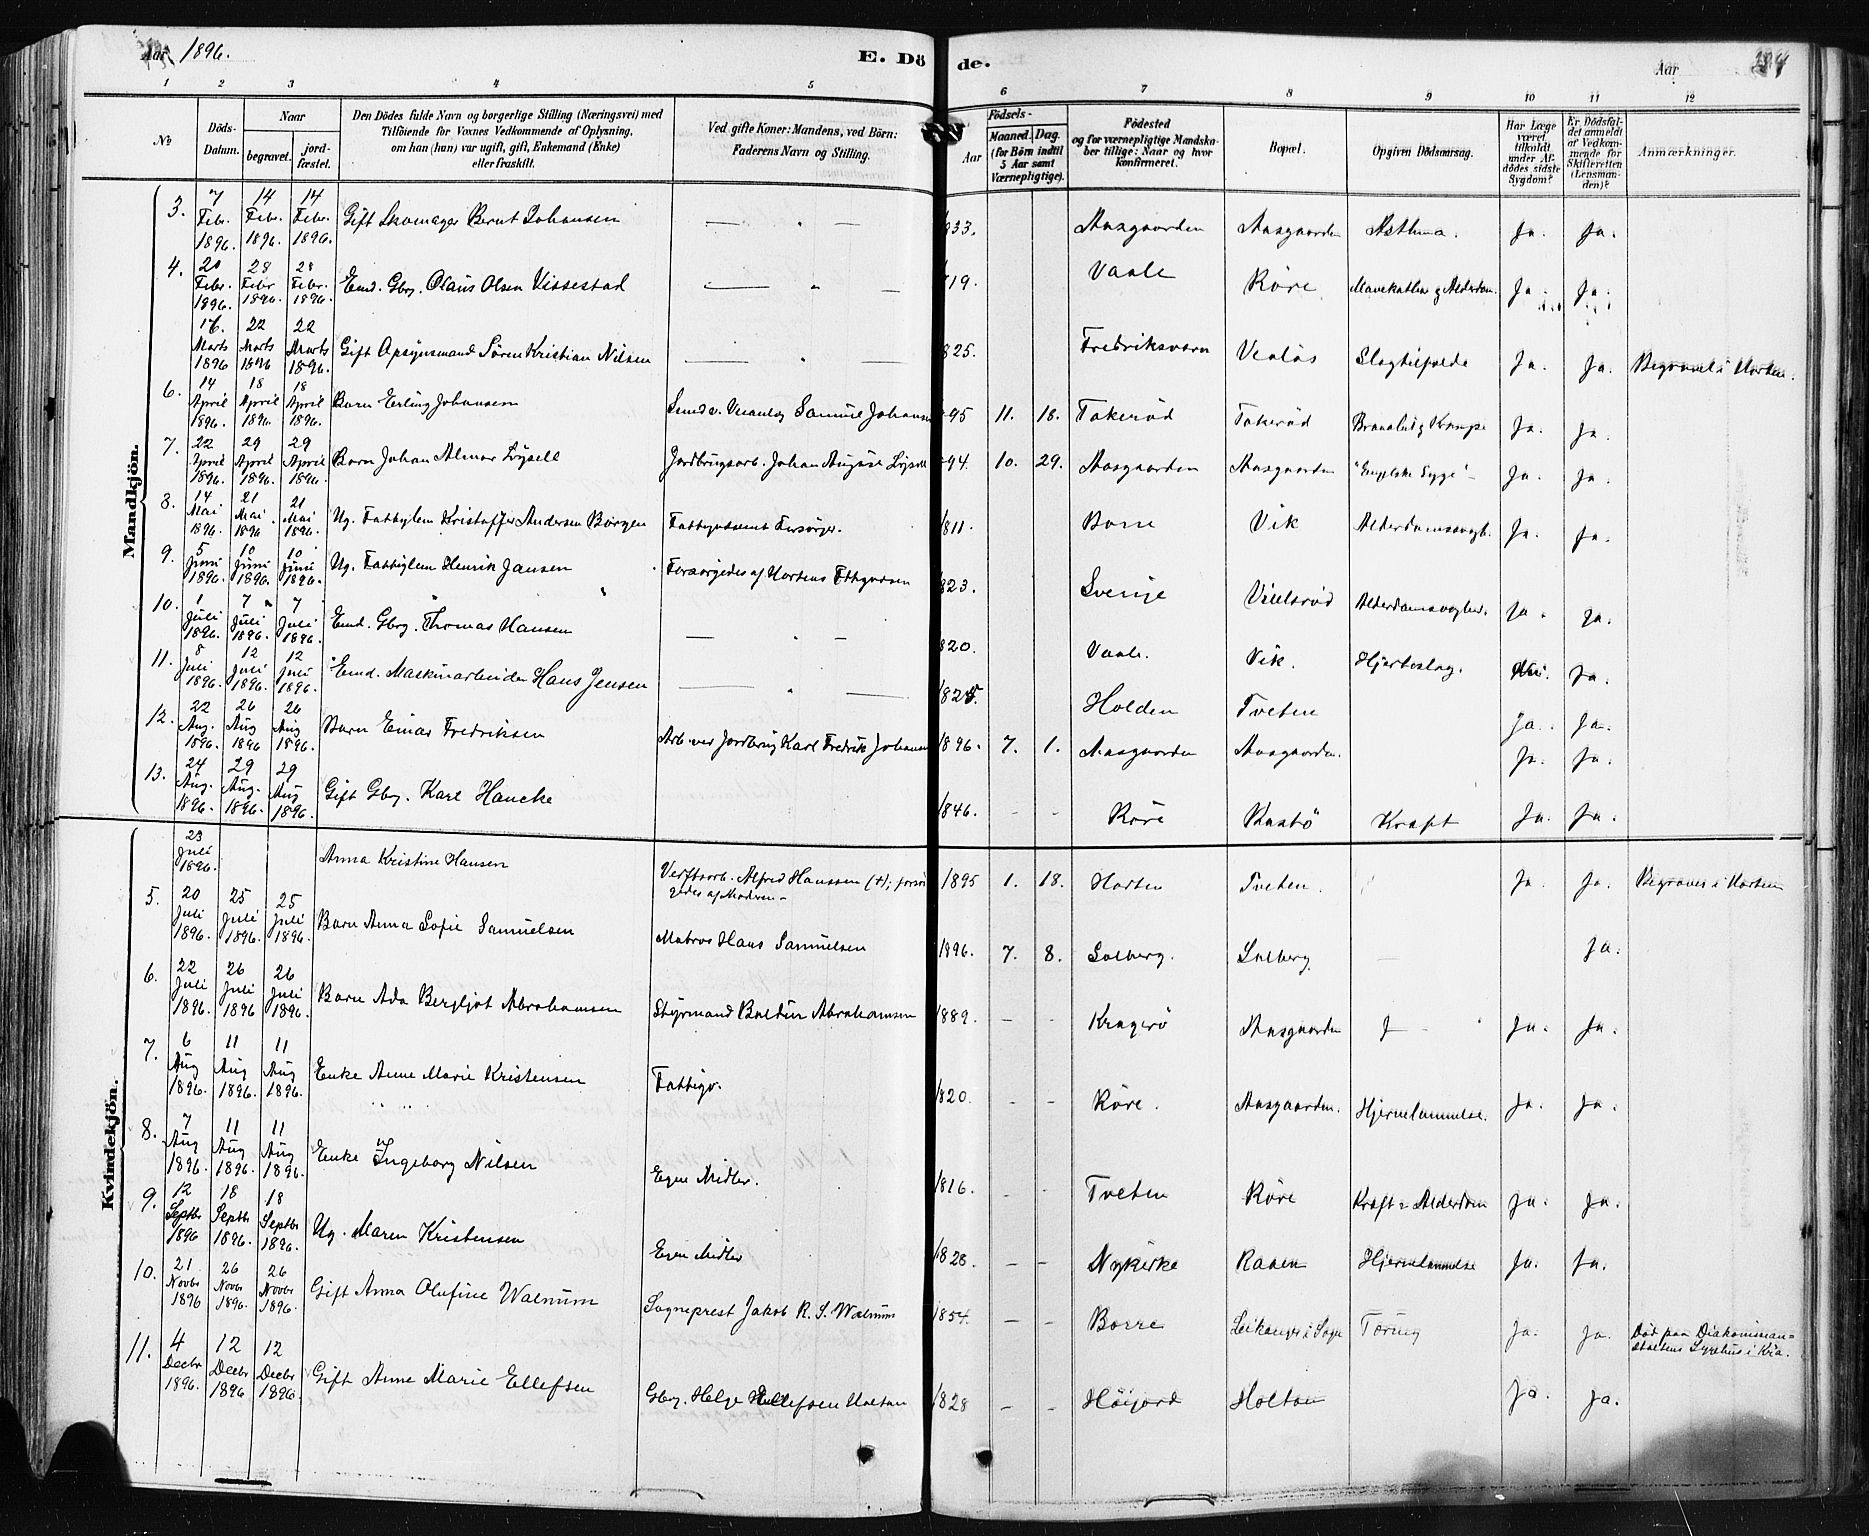 Aar 1896.
E. Döde.
Aar
1 2 3 4 5 6 7 8 9 10 11 12
No
Döds-Datum.
Naar
begravet.
jord-fæstet.
Den Dödes fulde Navn og borgerlige Stilling (Næringsvei) med
Tilföiende for Voxnes Vedkommende af Oplysning,
om han (hun) var ugift, gift, Enkemand (Enke)
eller fraskilt.
Ved gifte Koner: Mandens, ved Börn:
Faderens Navn og Stilling.
Födsels-
Aar
Maaned. Dag.
(for Börn indtil
5 Aar samt
Værnepligtige).
Födested
og for værnepligtige Mandska-
ber tillige: Naar og hvor
konfirmeret.
Bopæl.
Opgiven Dödsaarsag.
Har Læge
været
tilkaldt
under Af-
dödes sidste
Sygdom?
Er Dödsfal-
det anmeldt
af Vedkom-
mende for
Skifteretten
(Lensman-
den)?
Anmærkninger.
Mandkjön.
3. 7 Febr. 1896. 14 Febr. 1896. 14 Febr. 1896. Gift Skomager Bernt Johansen — " — 833. Aasgaarden Aasgaarden Asthma. Ja. Ja.
4. 20 Febr. 1896. 28 Febr 1896. 28 Febr. 1896. Emd. Gbr. Olaus Olsen Vissestad — " — 819. Vaale Röre Mavekathar & Alderdom. Ja. Ja.
16. Marts 1896 22 Marts 1896 22 Marts 1896. Gift Opsynsmand Sören Kristian Nilsen — " — 825. Fredriksværn Vealös Slagtilfælde Ja. Ja. Begravet i Horten.
6. 14 April 1896. 18 April 1896. 18 April 1896. Barn Erling Johansen Samuel Johansen 95 11. 18. Takeröd Takeröd Ja. Ja.
7. 22 April 1896. 29 April 1896. 29 April 1896. Barn Johan Almar Lysell Jordbrugsarb. Johan August Lysell 94. 10. 29. Aasgaarden Aasgaarden "Engelske Syge" Ja. Ja.
8. 14 Mai 1896. 21 Mai 1896 21 Mai 1896. Ug. Fattiglem Kristoffer Andersen Borgen Fattigvæsenet Forsörger. 1811. Borre Vik Alderdomssvagh. Ja. Ja.
9. 5 Juni 1896. 10 Juni 1896. 10 Juni 1896. Ug. Fattiglem Henrik Jansen Forsörgedes af Hortens Fttigvæsen 823. Sverige Alderdomssvaghed. Ja. Ja.
10. 1 Juli 1896. 7 Juli 1896. 7 Juli 1896. Emd. Gbr. Thomas Hansen — " — 820. Vaale. Vik. Hjerteslag. Nei. Ja.
11. 8 Juli 1896. 12 Juli 1896. 12 Juli 1896. Emd. Maskinarbeider Hans Jensen — " — 1825. Holden Tveten Ja. Ja.
12. 22 Aug. 1896. 26 Aug 1896 26 Aug 1896. Barn Einar Fredriksen Arb. ved Jordbrug Karl Fredrik Johansen 1896. 7. 1. Aasgaarden Aasgaarden. Ja. Ja.
13. 24 Aug. 1896. 29 Aug. 1896. 29 Aug 1896. Gift Gbr. Karl Hancke 1846. - - Röre Kraft Ja. Ja.
Kvindekjön.
23 Juli 1896. Anna Kristine Hansen Verftsarb. Alfred Hanssen (+); forsör
gedes af Moderen — 1895 1. 18. Horten Tveten. Ja. Ja. Begraves i Horten
5. 20 Juli 1896. 25 Juli 1896. 25 Juli 1896. Barn Anna Sofie Samuelsen Matros Hans Samuelsen 1896. 7. 8. Solberg. Solberg. — Ja.
6. 22 Juli 1896. 26 Juli 1896 26 Juli 1896. Barn Ada Bergljot Abrahamsen Styrmand Baldur Abrahamsen 1889. - - Kragerö Aasgaarden Ja. Ja.
7. 6 Aug 1896. 11 Aug 1896. 11 Aug 1896. Enke Anne Marie Kristensen Fattigv. 1820. - - Röre. Aasgaarden. Hjernelammelse. Ja. Ja.
8. 7 Aug 1896. 11 Aug 1896. 11 Aug 1896. Enke Ingeborg Nilsen Egne Midler. 1816. - - Tveten Röre Kraft & Alderdom Ja. Ja.
9. 12 Septbr 1896 18 Septbr 1896. 18 Septbr 1896. Ug. Maren Kristensen Egne Midler 1828. - - Nykirke Raaen Hjernelammelse Ja. Ja.
10. 21 Novbr 1896 26 Novbr 1896. 26 Novbr 1896. Gift Anna Olufine Walnum Sogneprest Jakob R. S. Walnum 1854. - - Borre Leikanger i Sogn Tæring Ja. Ja. Död paa Diakonissean-
staltens Sygehus i Kra.
11. 4 Decbr 1896. 12 Decbr 1896 12 Decbr 1896. Gift Anne Marie Ellefsen Gbr. Helge Ellefsen Holtan 1828 - - Höijord Holtan Ja. Ja.